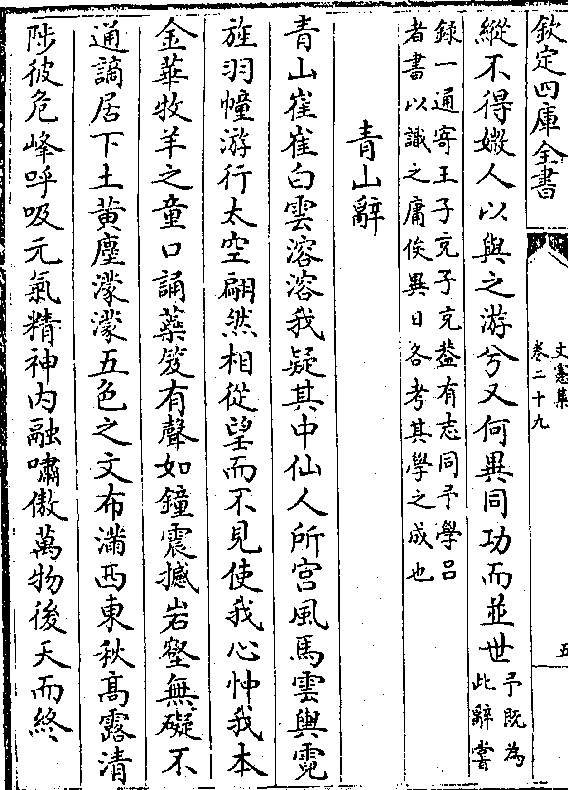 欽定四庫全書
文憲集
卷二十九
五
縱不得媺人以與之游兮又何異同功而並世予既為此辭嘗
録一通寄王子充子充葢有志同予學吕
者書以識之庸俟異日各考其學之成也
青山辭
青山崔崔白雲溶溶我疑其中仙人所宫風馬雲輿霓
旌羽幢游行太空翩然相從望而不見使我心忡我本
金華牧羊之童口誦蘂笈有聲如鐘震撼岩壑無礙不
通謫居下土黄塵濛濛五色之文布滿西東秋髙露清
陟彼危峰呼吸元氣精神内融嘯傲萬物後天而終